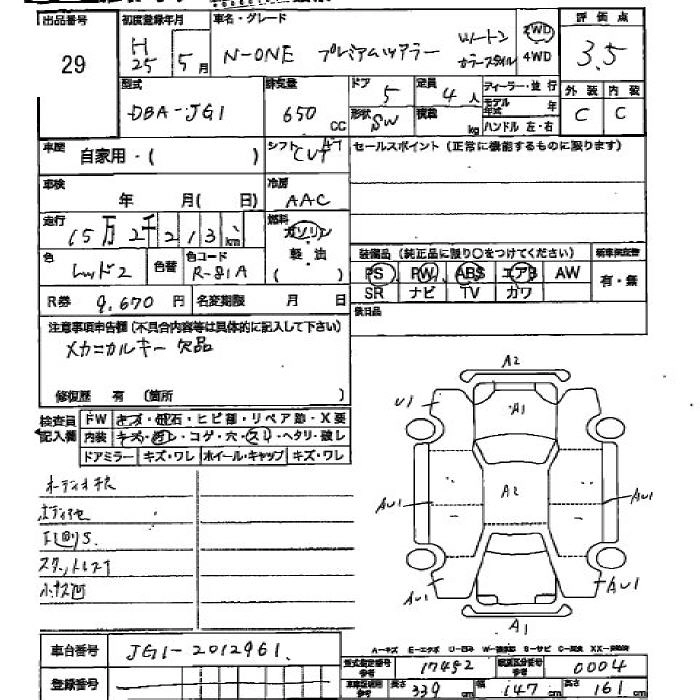 出品番号 初度登録年月 車名・グレード 評価点
29 H 25 5月 N-ONE プレミアムツアラー 2トン カラースタイル 2WD 4WD 3.5
型式 排気量 ドア 定員 ディーラー・並行 外装 内装
DBA-JG1 650 CC 5 4人 モデル年式 年 C C
形状 SW 積載 kg ハンドル 左・右
車歴 自家用・( ) シフト CVT セールスポイント(正常に機能するものに限ります)
車検 年 月( 日) 冷房 AAC
走行 15万2千213km 燃料 ガソリン
軽・油
( )
装備品(純正品に限り○をつけてください) 新車保証書
色 レッド2 色替 色コード R-81A
PS PW ABS エアB AW 有・無
SR ナビ TV カワ
R券 9,670円 名変期限 月 日 後日品
注意事項申告欄(不具合内容等は具体的に記入して下さい)
メカニカルキー欠品
修復歴 有 (箇所 )
検査員記入欄 FW キズ・飛石・ヒビ割・リペア跡・X要
内装 キズ・汚レ・コゲ・穴・スレ・ヘタリ・破レ
ドアミラー キズ・ワレ ホイール・キャップ キズ・ワレ
A2
U1 A1
A2
AU1 AU1
AU1 AU1
A1
車台番号 JG1-2012961
A-キズ E-エクボ U-凹ミ S-サビ
型式指定番号 17492 類別区分番号 0004
登録番号
長さ 339cm 幅 147cm 高さ 161cm